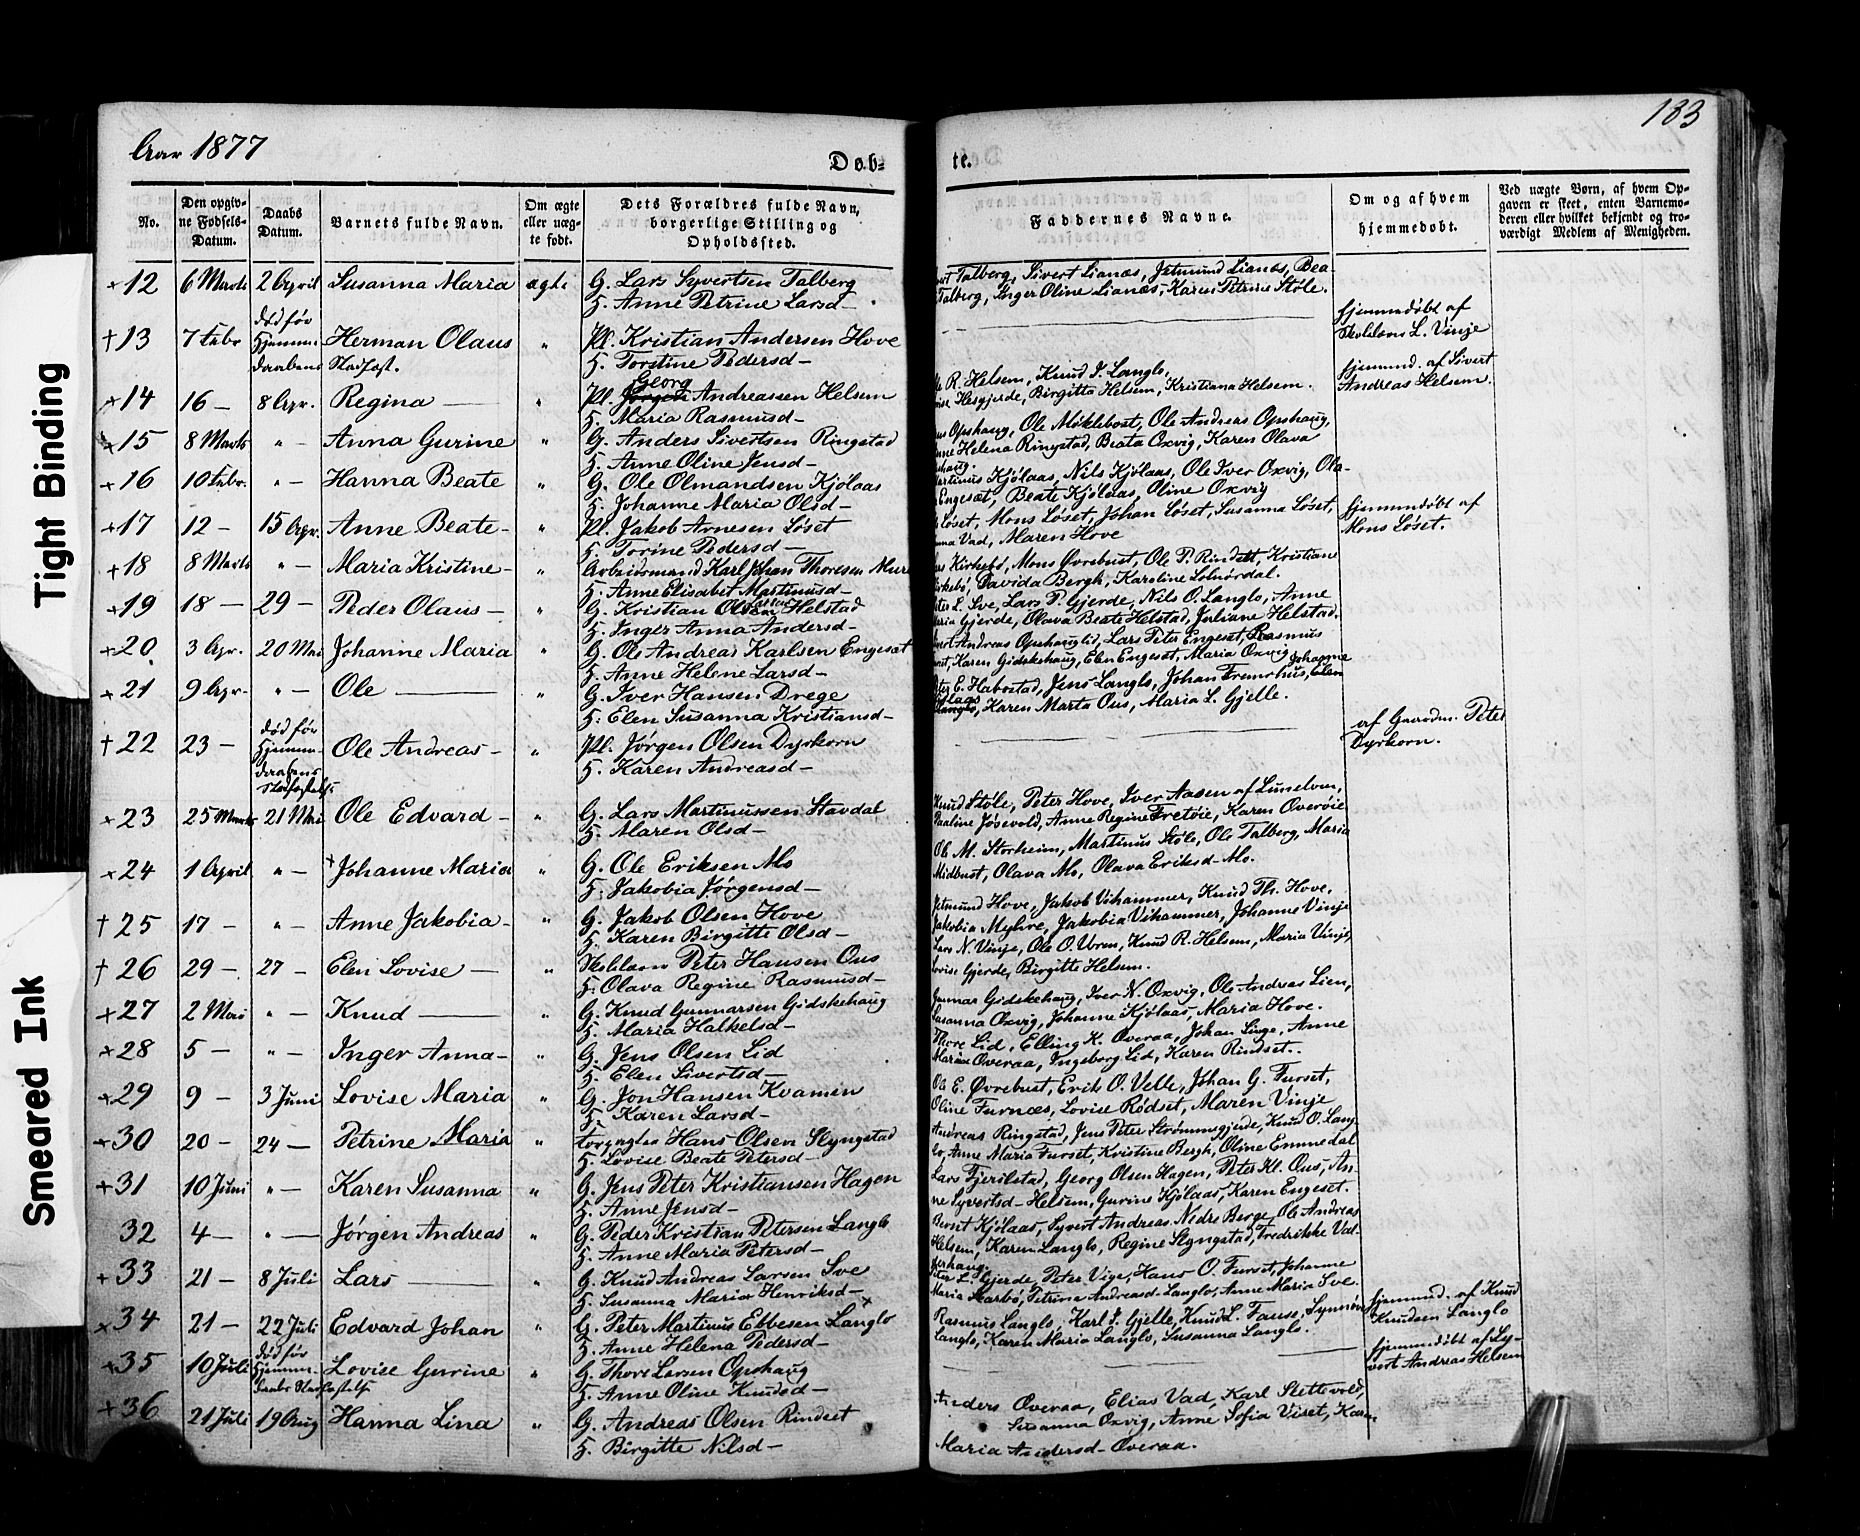 Tight Binding
Smeared Ink
Aar 1877
183
Døb-
te.
No.
Den opgiv-
ne Fødsels-
Datum.
Daabs
Datum.
Barnets fulde Navn.
Om ægte
eller uæg-
te født.
Dets Forældres fulde Navn,
borgerlige Stilling og
Opholdssted.
Faddernes Navne.
Om og af hvem
hjemmedøbt.
Ved uægte Børn, af hvem Op-
gaven er skeet, enten Barnemo-
deren eller hvilket bekjendt og tro-
værdigt Medlem af Menigheden.
+12 6 Marts 2 April Susanna Maria ægte G. Lars Syvertsen Talberg
H. Anne Petrine Larsd-
Talberg, Sivert Lianæs, Jetmund Lianæs, Bea-
Talberg, Inger Oline Lianæs, Karen Petrine Støle.
†13 7 Febr død før Hjemme-daabens Stadfæst. Herman Olaus " Pl. Kristian Andersen Hove
H. Torstine Pedersd-
hjemmedøbt af
Skolelærer L. Vinje
+14 16 - 8 Apr. Regina " Pl. Georg Andreassen Helsem
H. Maria Rasmusd-
R. Helsem, Knud J. Langlo,
Hesgjerde, Birgitta Helsem, Kristiana Helsem.
hjemmed. af Sivert
Andreas Helsem.
+15 8 Marts " - Anna Gurine " G. Anders Sivertsen Ringstad
H. Anne Oline Jensd-
Opshaug, Ole Møklebost, Ole Andreas Opshaug,
Helena Ringstad, Beata Oxvig, Karen Olava
+16 10 Febr. " - Hanna Beate " G. Ole Olmandsen Kjølaas
H. Johanne Maria Olsd-
Martinus Kjølaas, Nils Kjølaas, Ole Iver Oxvig, Ola-
Engeset, Beate Kjølaas, Oline Oxvig
+17 12 - 15 Apr. Anne Beate- " Pl. Jakob Arnesen Løset
H. Torine Pedersd-
Løset, Mons Løset, Johan Løset, Susanna Løset,
Vad, Maren Hove
hjemmedøbt af
Mons Løset.
+18 8 Marts " - Maria Kristine- " Arbeidsmand Karl Johan Thoresen Mure
H. Anne Elisabet Martinusd-
Kirkebø, Mons Øvrebust, Ole P. Rindset, Kristian
Kirkebø, Davida Bergh, Karoline Solnørdal.
+19 18 - 29 - Peder Olaus- " G. Kristian Olsen Helstad
H. Inger Anna Andersd-
L. Sve, Lars P. Gjerde, Nils O. Langlo, Anne
Maria Gjerde, Olava Beate Helstad, Juliane Helstad.
+20 3 Apr. 20 Mai Johanne Maria " G. Ole Andreas Karlsen Engeset
H. Anne Helene Larsd-
Andreas Opshauglid, Lars Peter Engeset, Rasmus
Karen Gidskehaug, Elen Engeset, Maria Oxvig
+21 9 Apr. " - Ole " G. Iver Hansen Drege
H. Elen Susanna Kristiansd-
Peter E. Habostad, Jens Langlo, Johan Fremrhus, Elen Johanne
Karen Marta Ous, Maria L. Gjelle.
†22 23 - død før Hjemme-daabens Stadfæstelse Ole Andreas- " Pl. Jørgen Olsen Dyrkorn
H. Karen Andreasd-
af Gaardm. Peter
Dyrkorn.
+23 25 Marts 21 Mai Ole Edvard- " G. Lars Martinussen Stavdal
H. Maren Olsd-
Knud Støle, Peter Hove, Iver Aasen af
Pauline Jøsevold, Anne Regine Fretøie, Karen Overøie
+24 1 April " - Johanne Maria " G. Ole Eriksen Mo
H. Jakobia Jørgensd-
Ole M. Storheim, Martinus Støle, Ole Talberg, Maria
Midbust, Olava Mo, Olava Eriksd. Mo.
†25 17 - " - Anne Jakobia- " G. Jakob Olsen Hove
H. Karen Birgitte Olsd-
Jetmund Hove, Jakob Vihammer, Knud Th. Hove,
Jakobia Myhre, Jakobia Vihammer, Johanne Vinje
†26 29 - 27 - Elen Lovise- " Skolelærer Peter Hansen Ous
H. Olava Regine Rasmusd-
Lars N. Vinje, Ole O. Uren, Knud R. Helsem, Maria Vinje,
Lovise Gjerde, Birgitte Helsem.
+27 2 Mai " - Knud " G. Knud Gunnarsen Gidskehaug
H. Maria Halkelsd-
Gunnar Gidskehaug, Iver N. Oxvig, Ole Andreas Lien,
Susanna Oxvig, Johanne Kjølaas, Maria Hove.
+28 5 - " - Inger Anna- " G. Jens Olsen Lid
H. Elen Sivertsd-
Thore Lid, Elling K. Overaa, Johan Linge, Anne
Marina Overaa, Ingeborg Lid, Karen Rindset.
+29 9 - 3 Juni Lovise Maria " G. Jon Hansen Kvamen
H. Karen Larsd-
Ole E. Øvrebust, Erik O. Velle, Johan G. Furset,
Oline Furnæs, Lovise Rødset, Maren Vinje
+30 20 - 24 - Petrine Maria " Forpagter Hans Olsen Slyngstad
H. Lovise Beate Petersd-
Andreas Ringstad, Jens Peter Strømmegjerde, Knud O. Lang-
lo, Anne Maria Furset, Kristine Bergh, Oline Emmedal
+31 10 Juni " - Karen Susanna " G. Jens Peter Kristiansen Hagen
H. Anne Jensd-
Lars Fjerilstad, Georg Olsen Hagen, Peter Kl. Ous, An-
ne Syvertsd- Helsem, Gurine Kjølaas, Karen Engeset.
32 4 - " - Jørgen Andreas " G. Peder Kristian Petersen Langlo
H. Anne Maria Petersd-
Bernt Kjølaas, Syvert Andreas Nedre Berge, Ole Andreas
Helsem, Karen Langlo, Regine Slyngstad, Fredrikke Vad-
+33 21 - 8 Juli Lars " G. Knud Andreas Larsen Sve
H. Susanna Maria Henriksd-
Peter L. Gjerde, Peter Vige, Hans O. Furset, Johanne
Maria Skarbø, Petrina Andreasd. Langlo, Anne Maria Sve.
+34 21 - 22 Juli Edvard Johan " G. Peter Martinus Ebbesen Langlo
H. Anne Helena Pedersd-
Rasmus Langlo, Karl J. Gjelle, Knud L. Fause, Synnøve
Langlo, Karen Maria Langlo, Susanna Langlo.
hjemmed. af Knud
Knudsen Langlo
+35 10 Juli død før Hjemme-daabs Stadfæstelse Lovise Gurine " G. Thore Larsen Opshaug
H. Anne Oline Knudsd-
hjemmedøbt af Sy-
vert Andreas Helsem
+36 21 Juli 19 Aug Hanna Lina " G. Andreas Olsen Rindset
H. Birgitte Nilsd-
Anders Overaa, Elias Vad, Karl Slettevold,
Susanna Oxvig, Anne Sofia Viset, Karen
Maria Andersd- Overaa.